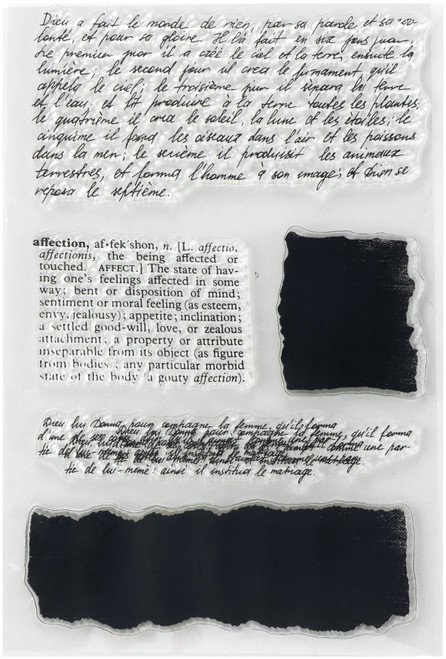 Dieu a fait le monde de rien, par sa parole et sa vo-
lonté, et pour sa gloire. Il l'a fait en six jours
Le premier jour il a créé le ciel et la terre, ensuite la
lumière; le second jour il crea le firmament, qu'il
appela le ciel; le troisième jour il sépara la terre
et l'eau, et fit produire à la terre toutes les plantes;
le quatrième il crea le soleil, la lune et les étoiles; le
cinquime il les oiseaux dans l'air et les poissons
dans la mer; le sixième il produisit les animaux
terrestres, et forma l'homme à son image; et Dieu se
reposa le septième.
affection, af·fek´shon, n. [L. affectio,
affectionis, the being affected or
touched. AFFECT.] The state of hav-
ing one's feelings affected in some
way; bent or disposition of mind;
sentiment or moral feeling (as esteem,
envy, jealousy); appetite; inclination;
a settled good-will, love, or zealous
attachment; a property or attribute
inseparable from its object (as figure
from bodies); any particular morbid
state of the body (a gouty affection).
Dieu lui donna pour compagne la femme, qu'il forma
d'une
comme une par-
tie de lui-même: ainsi il institua le mariage.